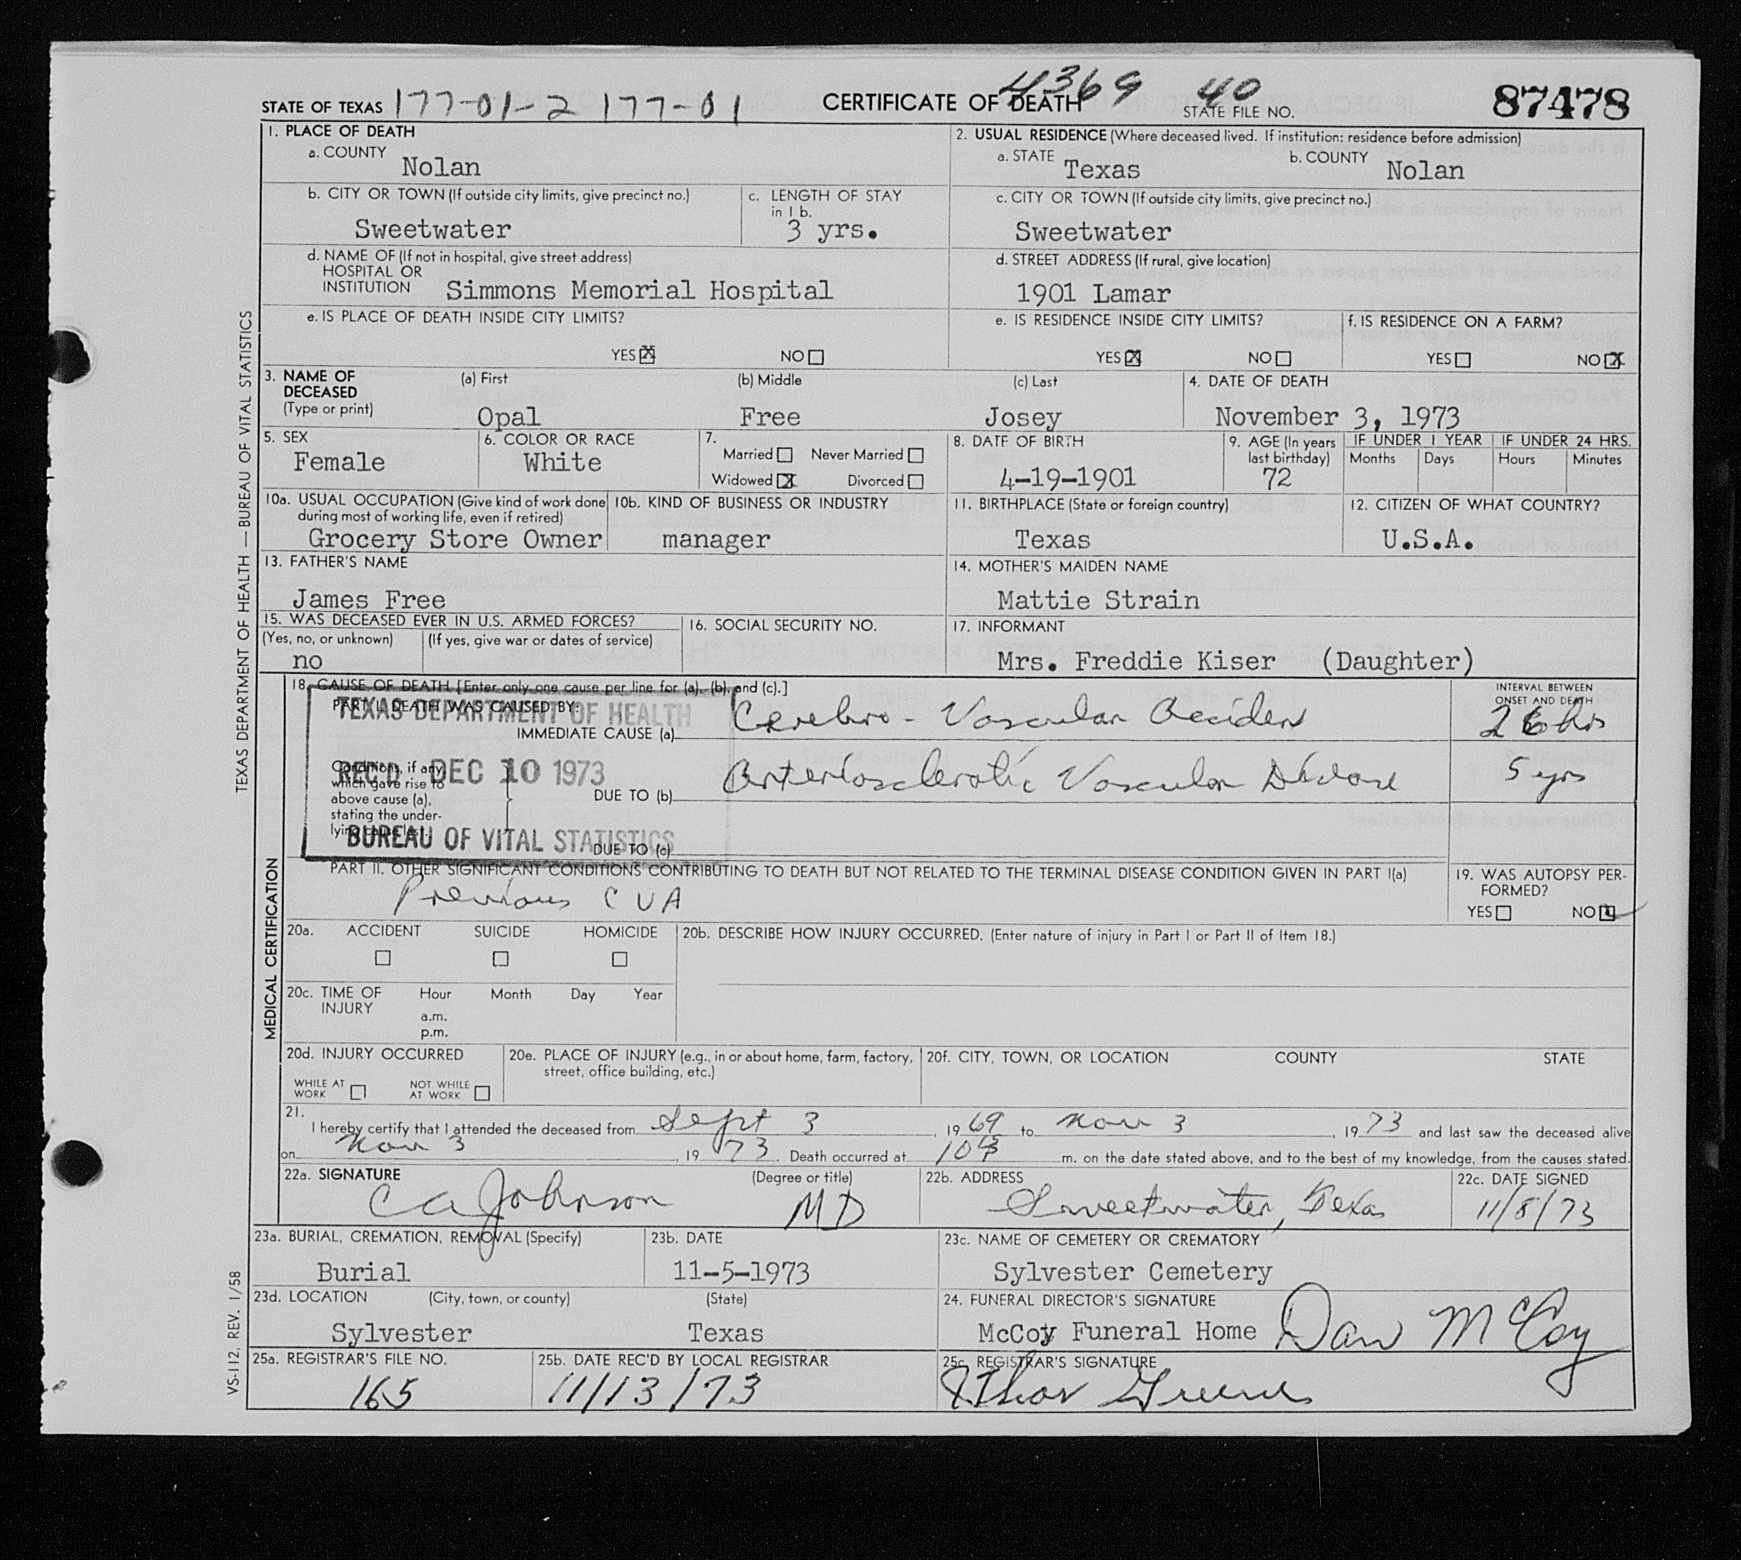 STATE OF TEXAS 177-01-2 177-01 CERTIFICATE OF DEATH 4369 STATE FILE NO. 40 87478
1. PLACE OF DEATH
a. COUNTY Nolan
2. USUAL RESIDENCE (Where deceased lived. If institution: residence before admission)
a. STATE Texas b. COUNTY Nolan
b. CITY OR TOWN (If outside city limits, give precinct no.) Sweetwater
c. LENGTH OF STAY in 1 b. 3 yrs.
c. CITY OR TOWN (If outside city limits, give precinct no.) Sweetwater
d. NAME OF (If not in hospital, give street address)
HOSPITAL OR
INSTITUTION Simmons Memorial Hospital
d. STREET ADDRESS (If rural, give location)
1901 Lamar
e. IS PLACE OF DEATH INSIDE CITY LIMITS?
YES X NO
e. IS RESIDENCE INSIDE CITY LIMITS?
YES X NO
f. IS RESIDENCE ON A FARM?
YES NO X
3. NAME OF DECEASED (Type or print)
(a) First (b) Middle (c) Last
Opal Free Josey
4. DATE OF DEATH
November 3, 1973
5. SEX
Female
6. COLOR OR RACE
White
7.
Married Never Married
Widowed X Divorced
8. DATE OF BIRTH
4-19-1901
9. AGE (In years last birthday)
72
IF UNDER 1 YEAR IF UNDER 24 HRS.
Months Days Hours Minutes
10a. USUAL OCCUPATION (Give kind of work done during most of working life, even if retired)
Grocery Store Owner
10b. KIND OF BUSINESS OR INDUSTRY
manager
11. BIRTHPLACE (State or foreign country)
Texas
12. CITIZEN OF WHAT COUNTRY?
U.S.A.
13. FATHER'S NAME
James Free
14. MOTHER'S MAIDEN NAME
Mattie Strain
15. WAS DECEASED EVER IN U.S. ARMED FORCES?
(Yes, no, or unknown) (If yes, give war or dates of service)
no
16. SOCIAL SECURITY NO.
17. INFORMANT
Mrs. Freddie Kiser (Daughter)
18. CAUSE OF DEATH [Enter only one cause per line for (a), (b), and (c).]
PART I. DEATH WAS CAUSED BY:
IMMEDIATE CAUSE (a) Cerebro-Vascular Accident
INTERVAL BETWEEN ONSET AND DEATH
26 hrs
TEXAS DEPARTMENT OF HEALTH
REC'D DEC 10 1973
BUREAU OF VITAL STATISTICS
Conditions, if any,
which gave rise to
above cause (a),
stating the under-
lying cause last.
DUE TO (b) Arteriosclerotic Vascular Disease 5 yrs
DUE TO (c)
PART II. OTHER SIGNIFICANT CONDITIONS CONTRIBUTING TO DEATH BUT NOT RELATED TO THE TERMINAL DISEASE CONDITION GIVEN IN PART I(a)
Previous CVA
19. WAS AUTOPSY PERFORMED?
YES NO
20a. ACCIDENT SUICIDE HOMICIDE
20b. DESCRIBE HOW INJURY OCCURRED. (Enter nature of injury in Part I or Part II of Item 18.)
20c. TIME OF INJURY Hour Month Day Year
a.m.
p.m.
20d. INJURY OCCURRED
WHILE AT WORK NOT WHILE AT WORK
20e. PLACE OF INJURY (e.g., in or about home, farm, factory, street, office building, etc.)
20f. CITY, TOWN, OR LOCATION COUNTY STATE
21.
I hereby certify that I attended the deceased from Sept 3, 1969 to Nov 3, 1973 and last saw the deceased alive
on Nov 3, 1973. Death occurred at m. on the date stated above, and to the best of my knowledge, from the causes stated.
22a. SIGNATURE (Degree or title)
C A Johnson MD
22b. ADDRESS
Sweetwater, Texas
22c. DATE SIGNED
11/8/73
23a. BURIAL, CREMATION, REMOVAL (Specify)
Burial
23b. DATE
11-5-1973
23c. NAME OF CEMETERY OR CREMATORY
Sylvester Cemetery
23d. LOCATION (City, town, or county) (State)
Sylvester Texas
24. FUNERAL DIRECTOR'S SIGNATURE
McCoy Funeral Home Dan McCoy
25a. REGISTRAR'S FILE NO.
165
25b. DATE REC'D BY LOCAL REGISTRAR
11/13/73
25c. REGISTRAR'S SIGNATURE
TEXAS DEPARTMENT OF HEALTH — BUREAU OF VITAL STATISTICS
MEDICAL CERTIFICATION
VS-112, REV. 1/58